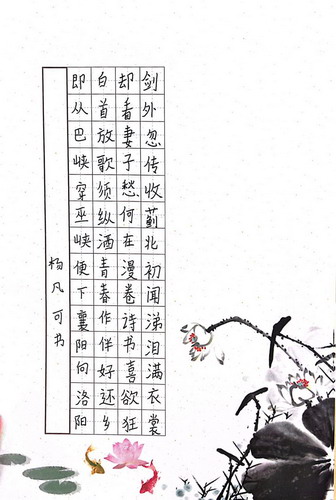 剑外忽传收蓟北初闻涕泪满衣裳
却看妻子愁何在漫卷诗书喜欲狂
白首放歌须纵酒青春作伴好还乡
即从巴峡穿巫峡便下襄阳向洛阳
杨凡可书